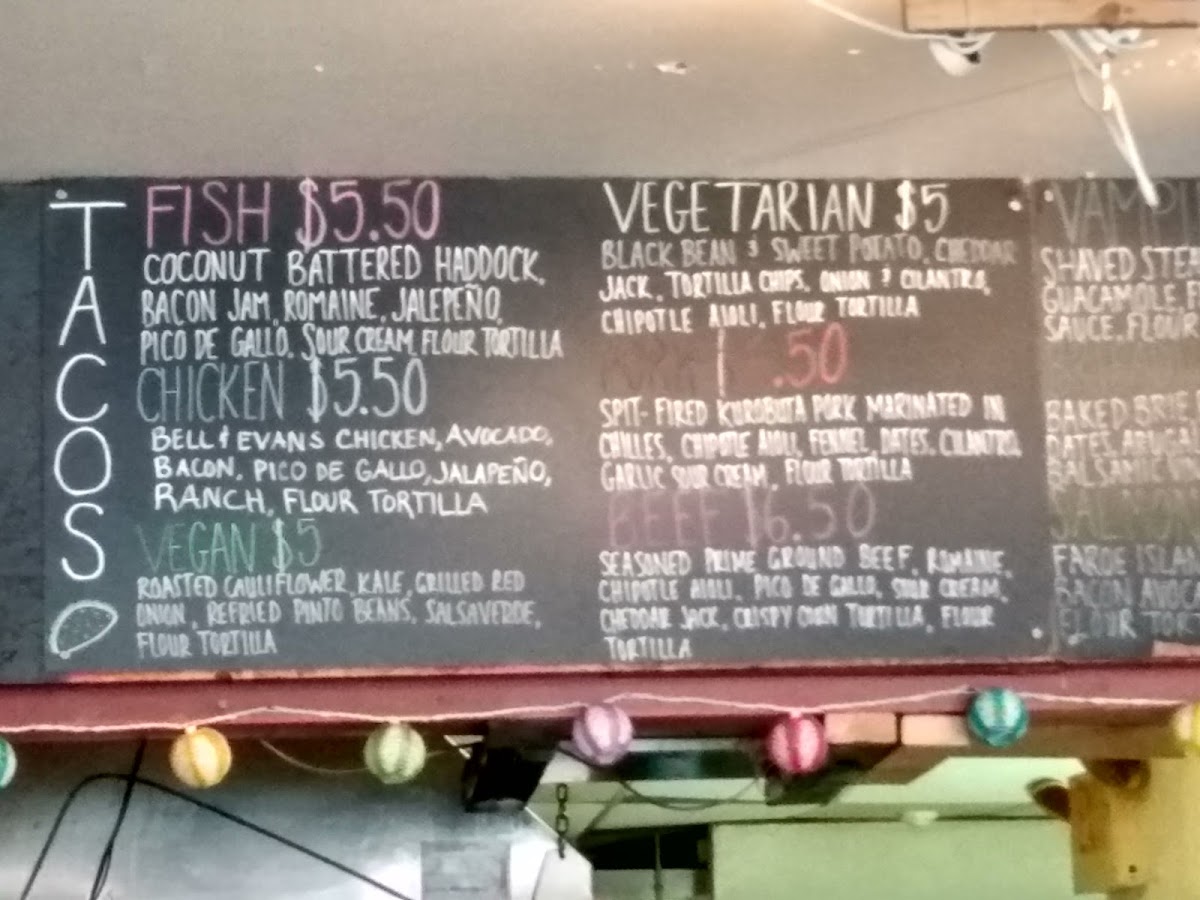 TACOS
FISH $5.50
COCONUT BATTERED HADDOCK,
BACON JAM, ROMAINE, JALEPEÑO,
PICO DE GALLO, SOUR CREAM, FLOUR TORTILLA
CHICKEN $5.50
BELL & EVANS CHICKEN, AVOCADO,
BACON, PICO DE GALLO, JALAPEÑO,
RANCH, FLOUR TORTILLA
VEGAN $5
ROASTED CAULIFLOWER, KALE, GRILLED RED
ONION, REFRIED PINTO BEANS, SALSAVERDE,
FLOUR TORTILLA
VEGETARIAN $5
BLACK BEAN & SWEET POTATO, CHEDDAR
JACK, TORTILLA CHIPS, ONION & CILANTRO,
CHIPOTLE AIOLI, FLOUR TORTILLA
PORK .50
SPIT-FIRED KUROBUTA PORK MARINATED IN
CHILES, CHIPOTLE AIOLI, FENNEL, DATES, CILANTRO,
GARLIC SOUR CREAM, FLOUR TORTILLA
BEEF $6.50
SEASONED PRIME GROUND BEEF, ROMAINE,
CHIPOTLE AIOLI, PICO DE GALLO, SOUR CREAM,
CHEDDAR JACK, CRISPY CORN TORTILLA, FLOUR
TORTILLA
VAMPI
SHAVED STEA
GUACAMOLE,
SAUCE, FLOUR
BAKED BRIE
DATES,
BALSAMIC
SALMON
FAROE ISLAN
BACON AVOC
FLOUR TOR